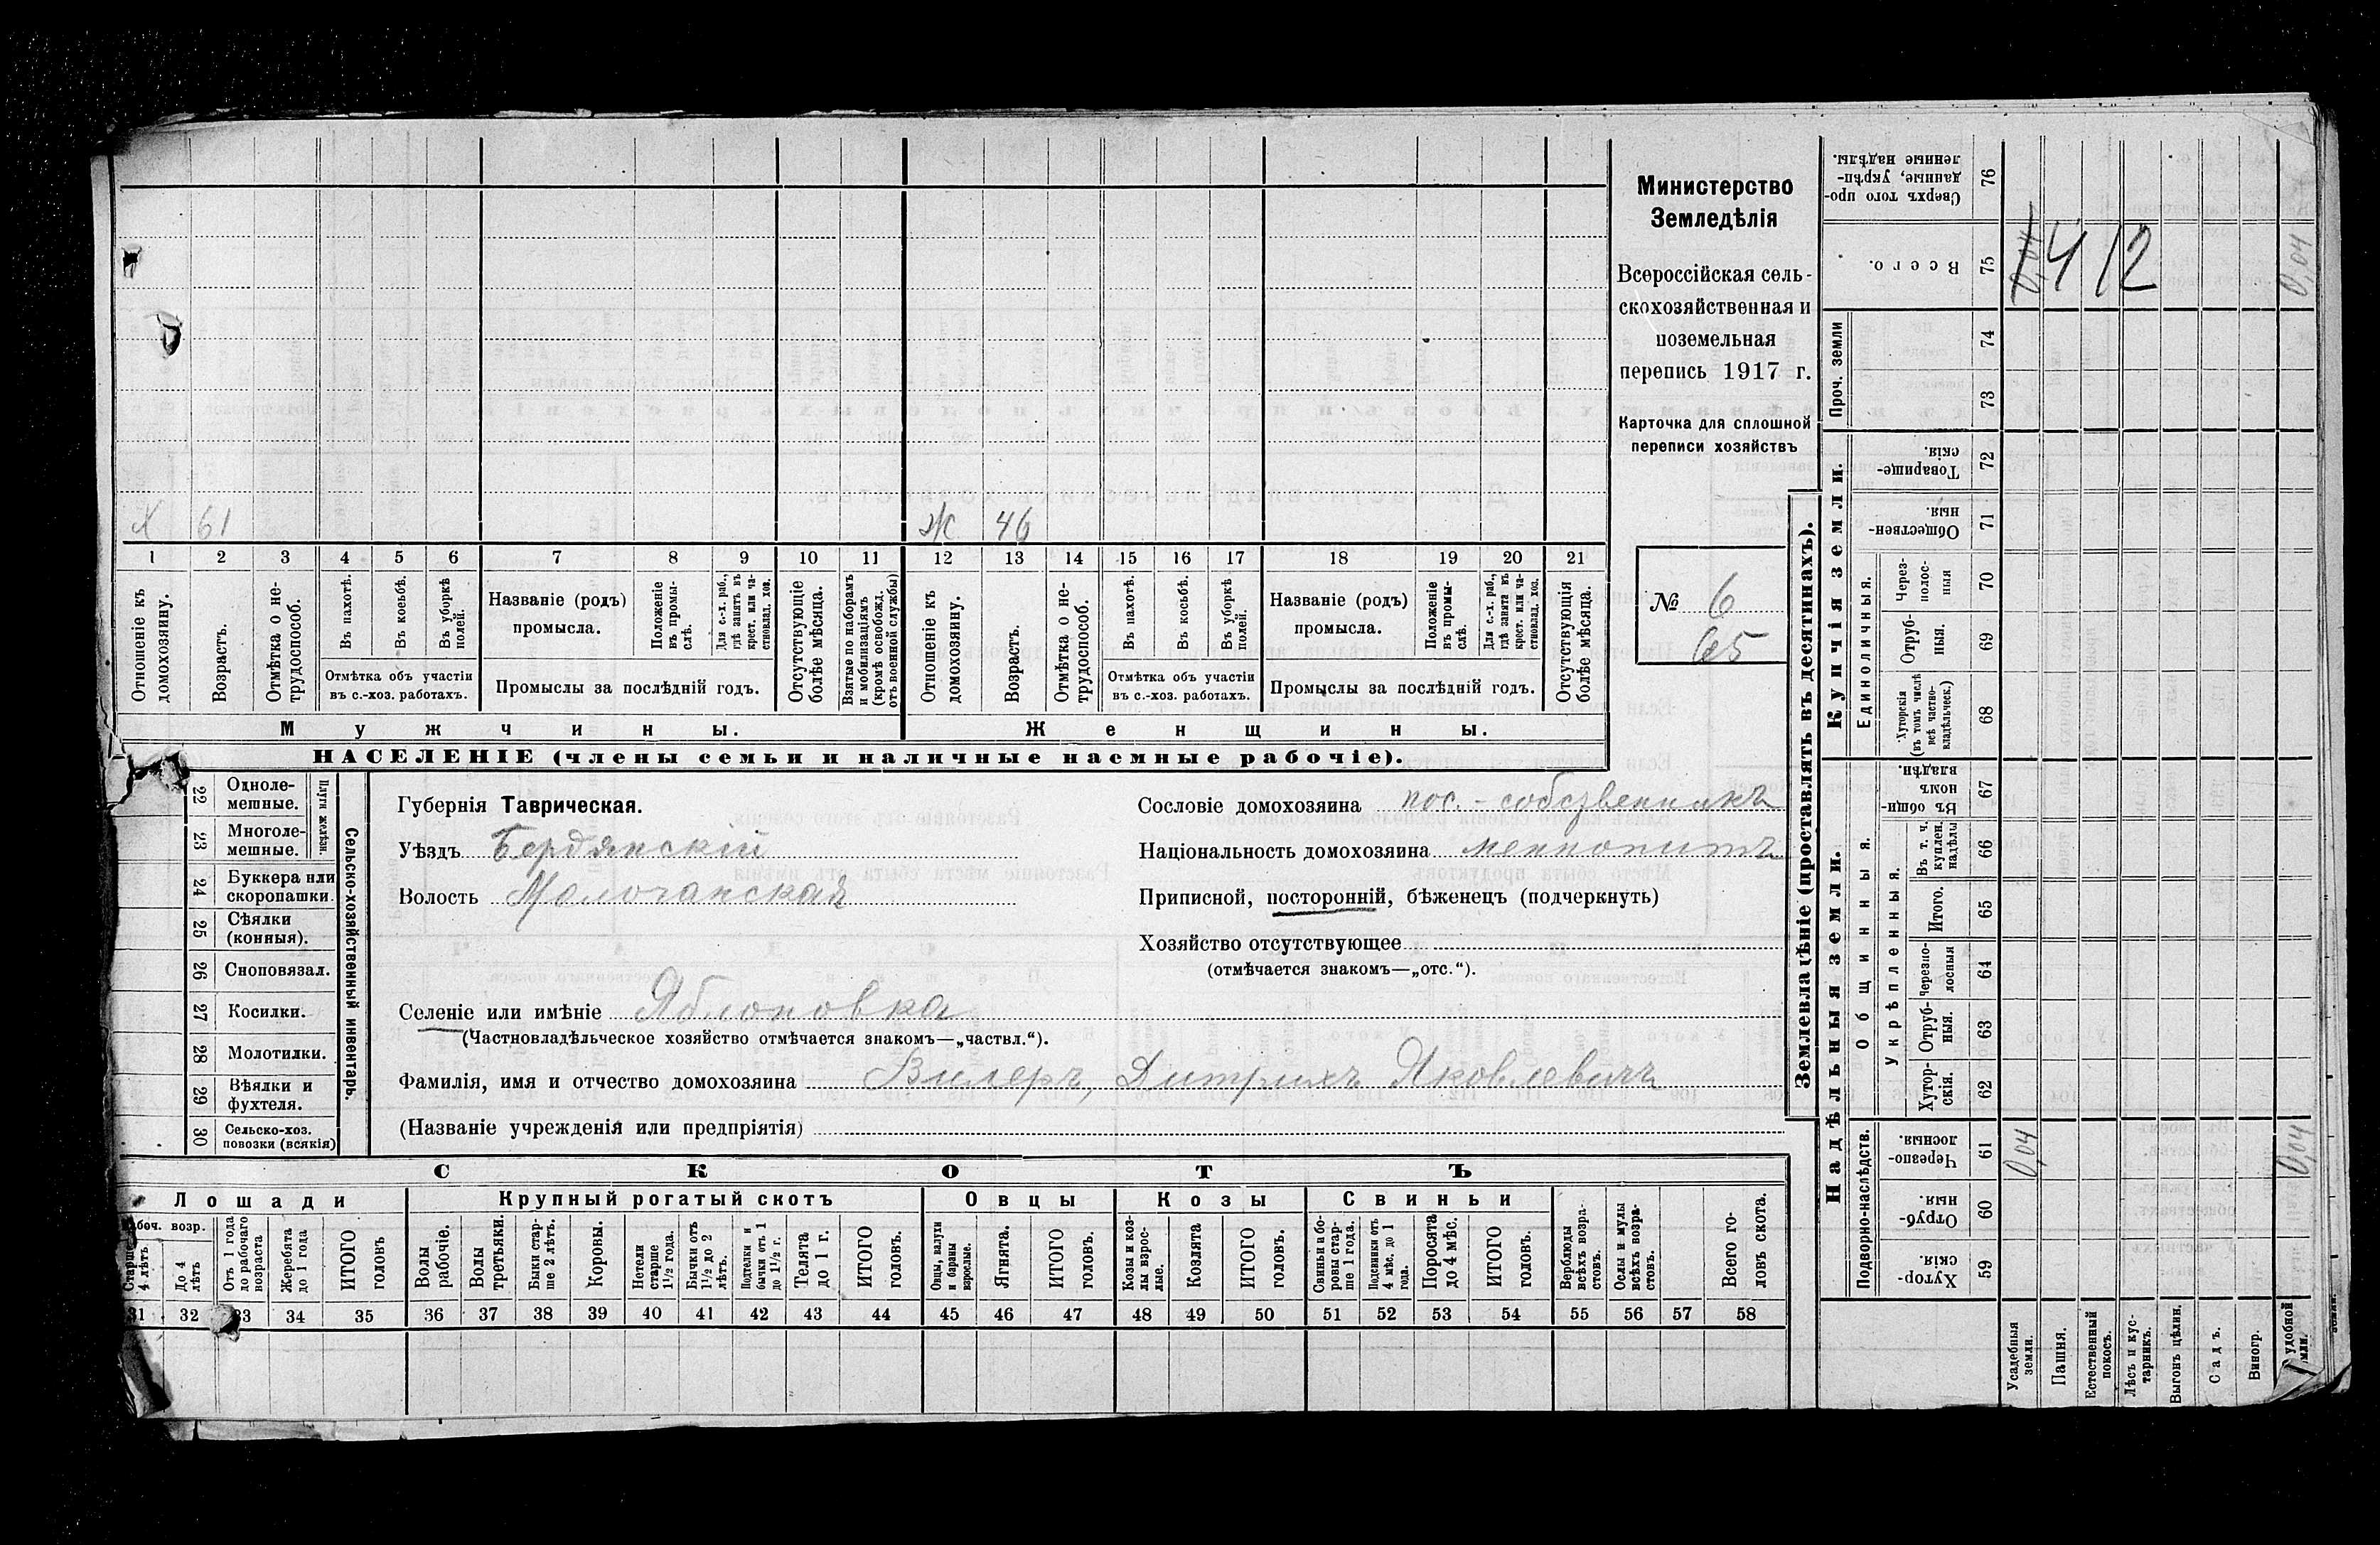 Х 61 Ж 46
1 2 3 4 5 6 7 8 9 10 11 12 13 14 15 16 17 18 19 20 21
Отношеніе къ домохозяину.
Возрастъ.
Отмѣтка о не-трудоспособ.
Въ пахотѣ.
Въ косьбѣ.
Въ уборкѣ полей.
Отмѣтка объ участіи
въ с.-хоз. работахъ.
Названіе (родъ)
промысла.
Положеніе въ промы-слѣ.
Для с.-х. раб., гдѣ занятъ въ крест. или ча-стновлад. хоз.
Промыслы за послѣдній годъ.
Отсутствующіе болѣе мѣсяца.
Взятые по наборамъ и мобилизаціямъ (кромѣ освобожд. отъ военной службы)
Отношеніе къ домохозяину.
Возрастъ.
Отмѣтка о не-трудоспособ.
Въ пахотѣ.
Въ косьбѣ.
Въ уборкѣ полей.
Отмѣтка объ участіи
въ с.-хоз. работахъ.
Названіе (родъ)
промысла.
Положеніе въ промы-слѣ.
Для с.-х. раб., гдѣ занята въ крест. или ча-стновлад. хоз.
Промыслы за послѣдній годъ.
Отсутствующія болѣе мѣсяца.
Мужчины. Женщины.
НАСЕЛЕНІЕ (члены семьи и наличные наемные рабочіе).
Министерство
Земледѣлія
Всероссійская сель-
скохозяйственная и
поземельная
перепись 1917 г.
Карточка для сплошной
переписи хозяйствъ
№ 6
65
22 Одноле-мешные.
23 Многоле-мешные.
Плуги желѣзн.
24 Буккера или скоропашки.
25 Сѣялки (конныя).
26 Сноповязал.
27 Косилки.
28 Молотилки.
29 Вѣялки и фухтеля.
30 Сельско-хоз. повозки (всякія)
Сельско-хозяйственный инвентарь.
Губернія Таврическая.
Уѣздъ Бердянскій
Волость Молочанская
Сословіе домохозяина пос.-собственникъ
Національность домохозяина меннонитъ
Приписной, посторонній, бѣженецъ (подчеркнуть)
Хозяйство отсутствующее
(отмѣчается знакомъ—„отс.“).
Селеніе или имѣніе Яблоновка
(Частновладѣльческое хозяйство отмѣчается знакомъ—„частвл.“).
Фамилія, имя и отчество домохозяина Вилеръ, Дитрихъ Яковлевичъ
(Названіе учрежденія или предпріятія)
СКОТЪ
Лошади Крупный рогатый скотъ Овцы Козы Свиньи
боч. возр.
Старше 4 лѣтъ
До 4 лѣтъ
Отъ 1 года до рабочаго возраста
Жеребята до 1 года
ИТОГО головъ
Волы рабочіе.
Волы третьяки.
Быки стар-ше 2 лѣтъ.
Коровы.
Нетели старше 1½ года.
Бычки отъ 1½ до 2 лѣтъ.
Подтелки и бычки отъ 1 до 1½ г.
Телята до 1 г.
ИТОГО головъ.
Овцы, валухи и бараны взрослые.
Ягнята.
ИТОГО головъ.
Козы и коз-лы взрос-лые.
Козлята
ИТОГО головъ.
Свиньи и бо-ровы стар-ше 1 года.
Подсвинки отъ 4 мѣс. до 1 года.
Поросята до 4 мѣс.
ИТОГО головъ.
Верблюды всѣхъ возра-стовъ.
Ослы и мулы всѣхъ возра-стовъ.
Всего го-ловъ скота.
31 32 33 34 35 36 37 38 39 40 41 42 43 44 45 46 47 48 49 50 51 52 53 54 55 56 57 58
Землевладѣніе (проставлять въ десятинахъ).
Надѣльныя земли. Купчія земли. Проч. земли
Подворно-наслѣдств. Общинныя. Единоличныя.
Укрѣпленныя.
Хутор-скія. 59
Отруб-ныя. 60
Черезпо-лосныя. 61
Хутор-скія. 62
Отруб-ныя. 63
Черезпо-лосныя 64
Итого. 65
Въ т. ч. куплен. надѣлы 66
Въ общи-номъ владѣн. 67
Хуторскія (въ томъ числѣ всѣ частно-владѣльческ.) 68
Отруб-ныя. 69
Через-полос-ныя 70
Обществен-ныя. 71
Товарище-скія. 72
73
74
Всего. 75
Сверхъ того про-данные, укрѣп-ленные надѣлы. 76
Усадебныя земли. 0,04 0,04
4 12
Пашня.
Естественный покосъ.
Лѣсъ и кус-тарникъ.
Выгонъ цѣлин.
Садъ.
Виногр.
удобной 0,04 0,04